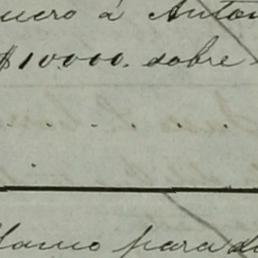 uero á Anton
$10000. sobre
. . . . .
para